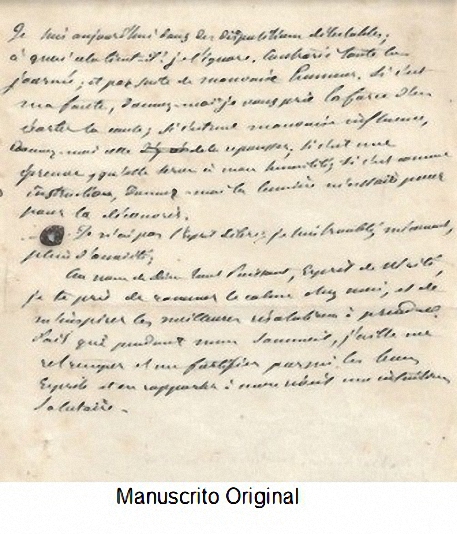 Je suis aujourd'hui dans des dispositions détestables;
à quoi cela tient-il? je l'ignore. toute la
journée; et par suite de mauvaise humeur. Si c'est
ma faute, donnez-moi je vous prie la force d'en
écarter la cause; si c'est une mauvaise influence,
donnez-moi celle de la repousser, si c'est une
épreuve, qu'elle serve à mon humilité; si c'est comme
instruction, donnez-moi la lumière nécessaire pour
pour la découvrir.
Je n'ai pas l'esprit libre; je suis troublé, mécontent,
plein d'anxiété;
Au nom de Dieu tout Puissant, Esprit de Vérité,
je te prie de ramener le calme chez moi, et de
m'inspirer les meilleures résolutions à prendre.
Fais que pendant mon sommeil, j'aille me
retremper et me fortifier parmi les bons
Esprits et en rapporter à mon réveil une intuition
salutaire.
Manuscrito Original